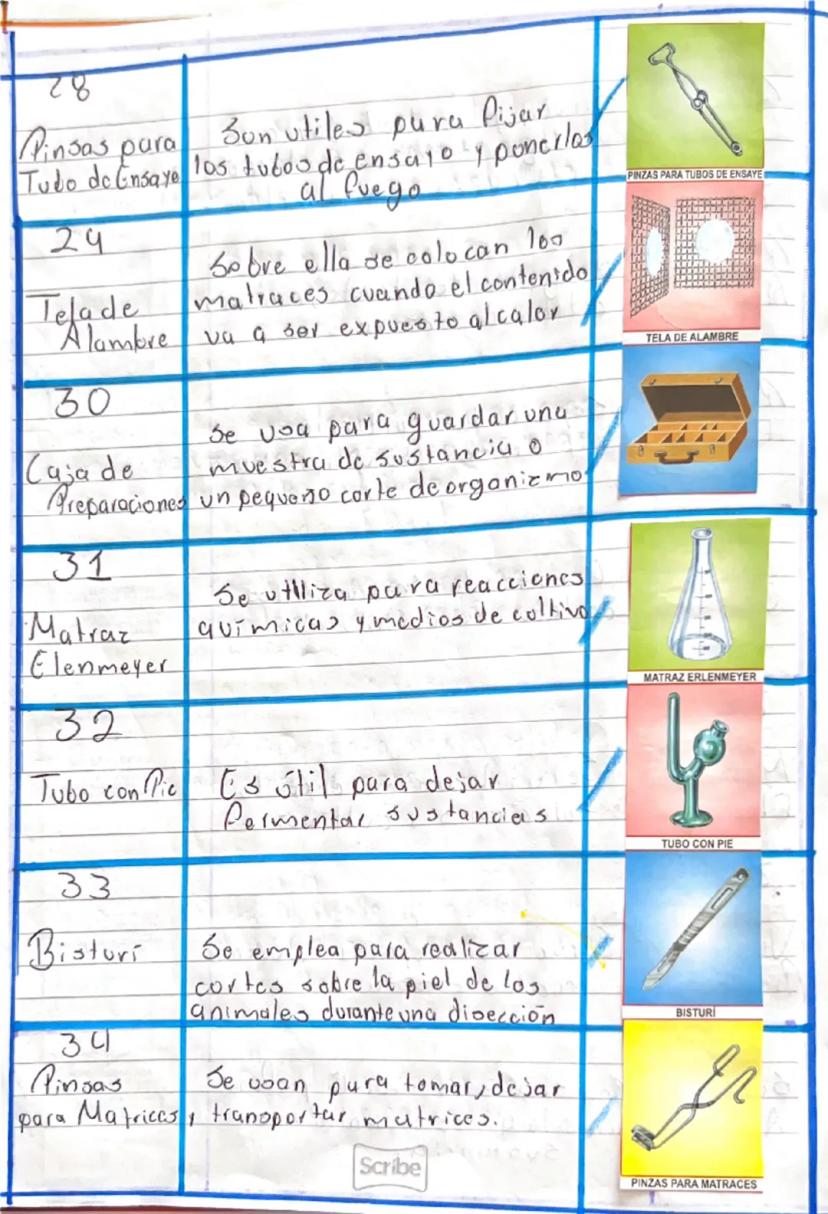 28
Pinsas para
Tubo de Ensaye
Son utiles para fijar
los tubos de ensayo y ponerlos
al fuego
PINZAS PARA TUBOS DE ENSAYE
29
Tela de
Alambre
Sobre ella se colocan los
matraces cuando el contenido
va a ser expuesto al calor
TELA DE ALAMBRE
30
Caja de
Preparaciones
se usa para guardar una
muestra de sustancia o
un pequeño corte de organizmo
31
Matraz
Elenmeyer
Se utiliza para reacciones
químicas y medios de coltivo
MATRAZ ERLENMEYER
32
Tubo con Pie
Es útil para dejar
fermentar sustancias
TUBO CON PIE
33
Bisturí
Se emplea para realizar
cortes sobre la piel de los
animales durante una disección
BISTURÍ
34
Pinsas
para Matrices
Se usan para tomar, dejar
y transportar matrices.
PINZAS PARA MATRACES
Scribe